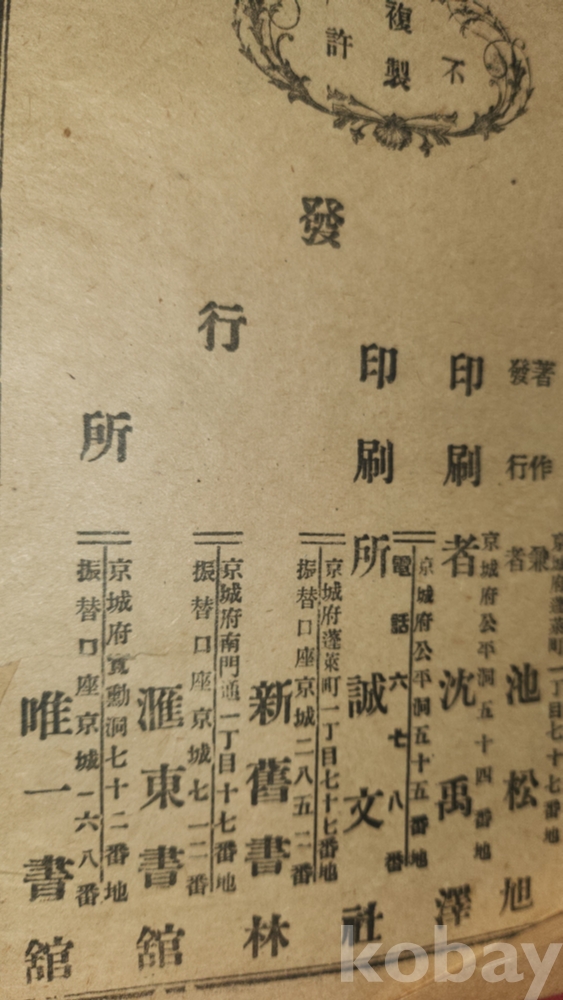 不許
複製
京城府蓬萊町一丁目七十七番地
著作兼
發行者 池松旭
京城府公平洞五十四番地
印刷者 沈禹澤
京城府公平洞五十五番地
電話六七八番
印刷所 誠文社
發行所
京城府蓬萊町一丁目七十七番地
振替口座京城二八五二番
新舊書林
京城府南門通一丁目十七番地
振替口座京城七一二番
滙東書舘
京城府寬勳洞七十二番地
振替口座京城一六八番
唯一書舘
kobay